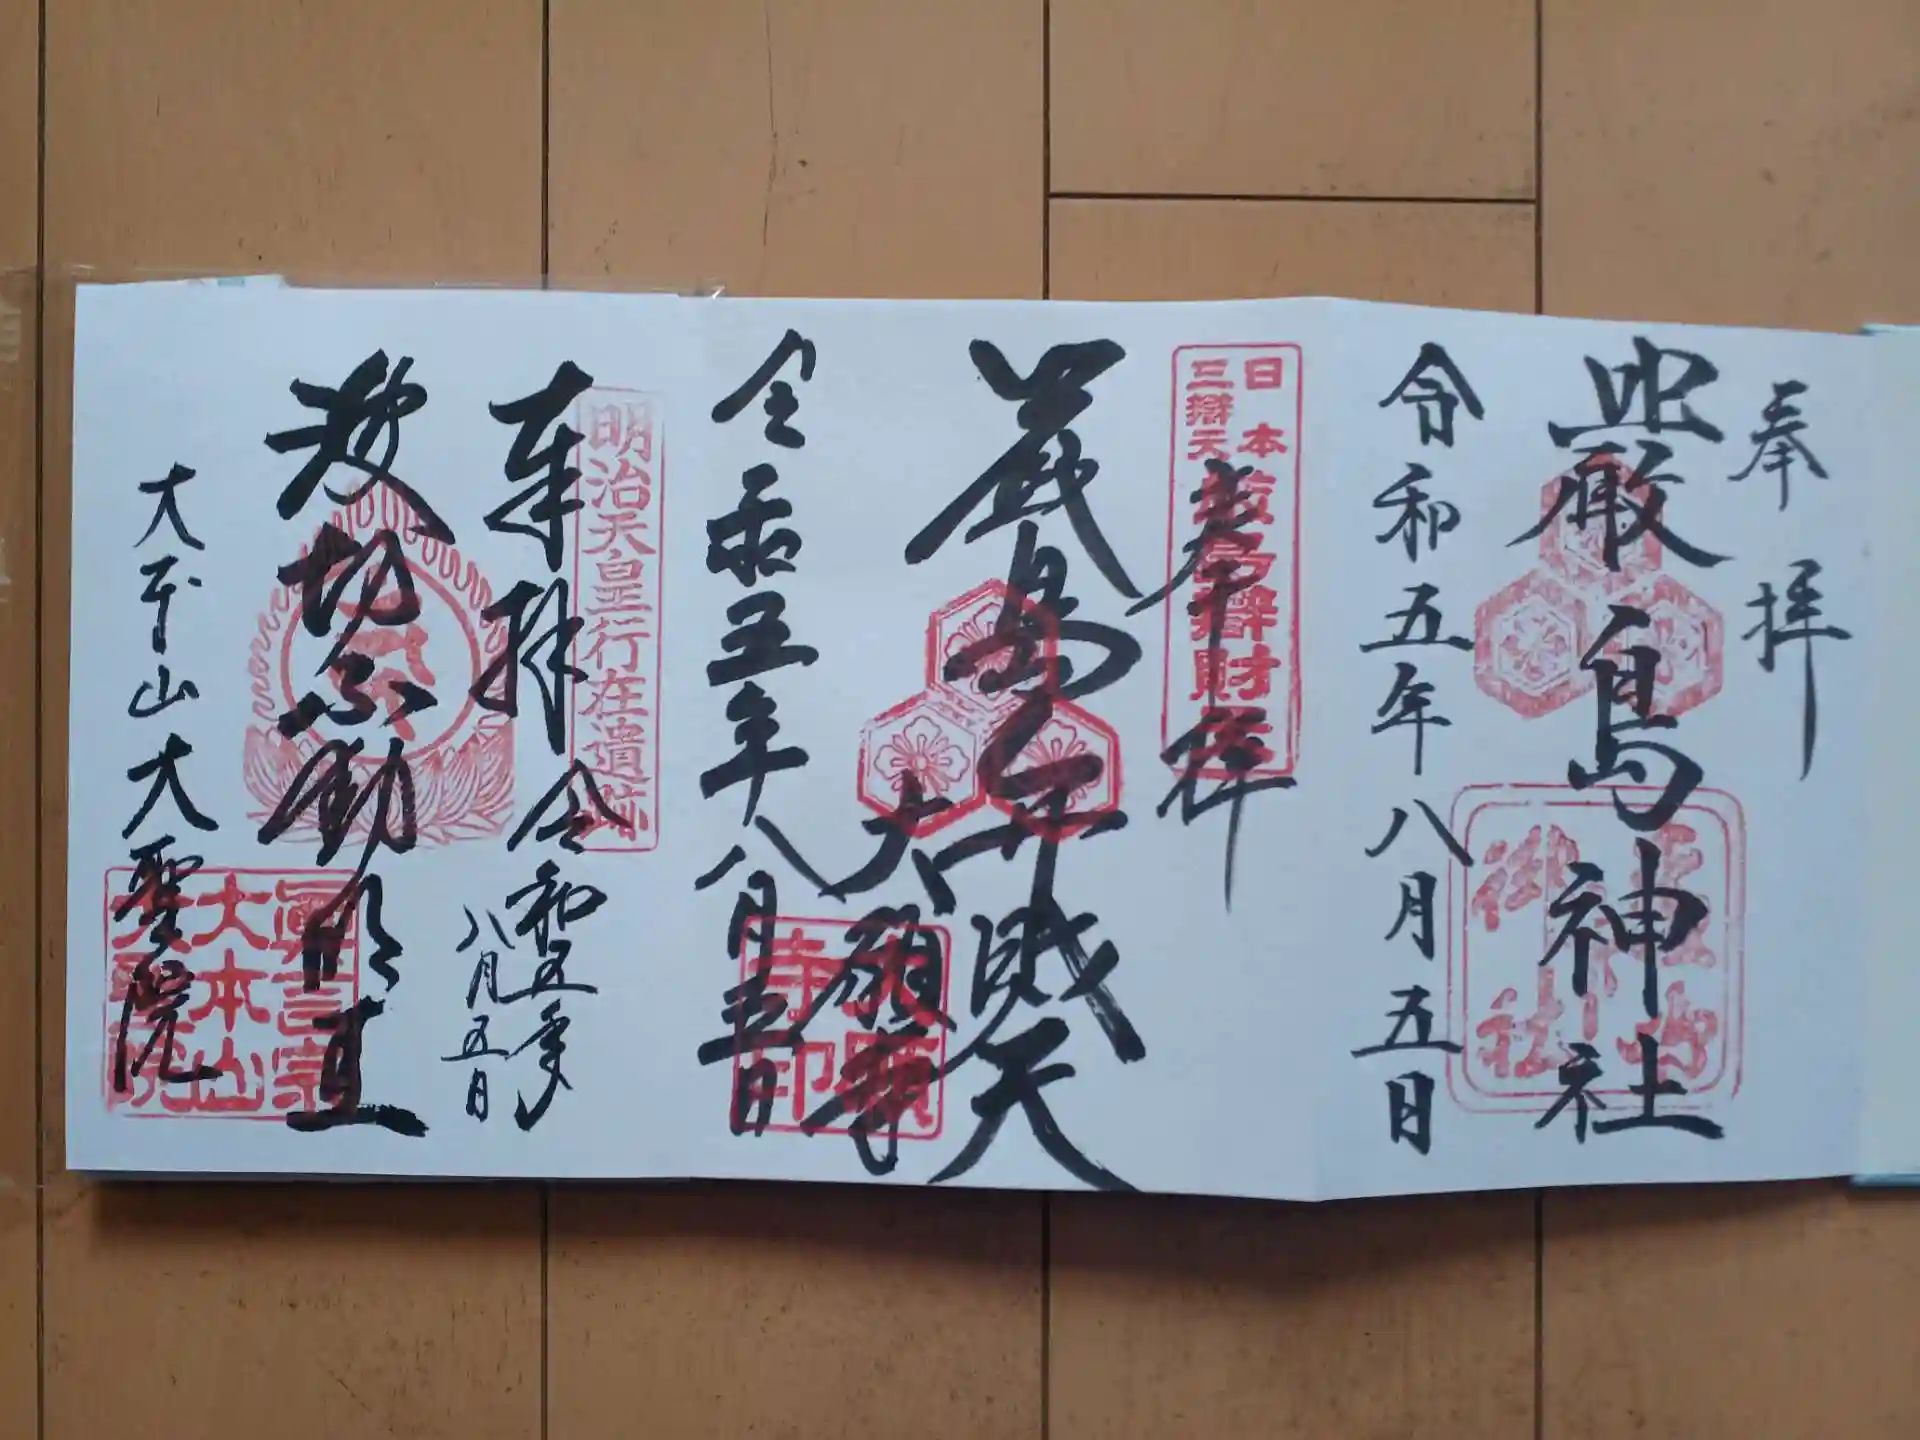 奉拝
嚴島神社
令和五年八月五日
日本
三辯天
嚴島辯財天
奉拝
嚴島弁財天
大願寺
寺印
令和五年八月五日
明治天皇行在遺跡
奉拝
令和五年
八月五日
波切不動明王
大本山大聖院
眞言宗
大本山
大聖院